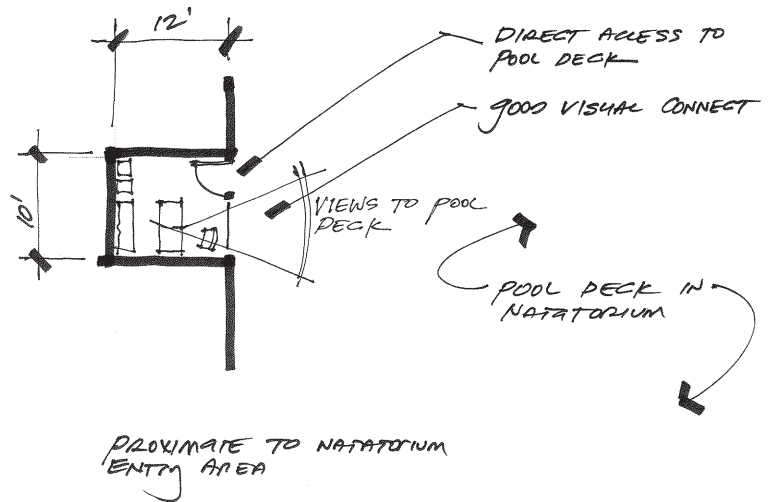 12'
DIRECT ACCESS TO
POOL DECK
GOOD VISUAL CONNECT
10'
VIEWS TO POOL
DECK
POOL DECK IN
NATATORIUM
PROXIMATE TO NATATORIUM
ENTRY AREA